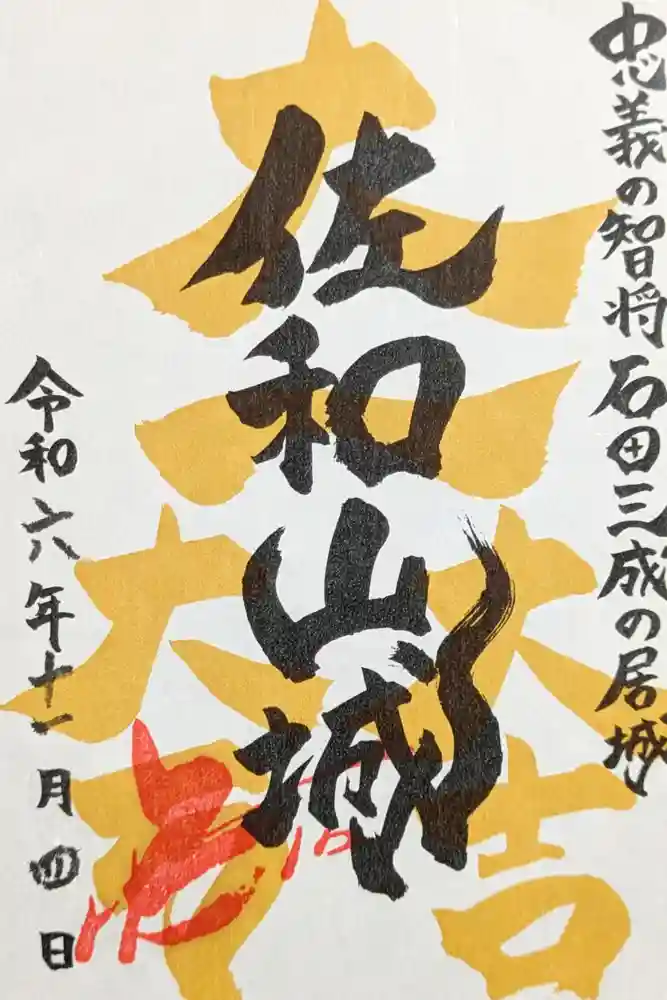 忠義の智将 石田三成の居城
大一大万大吉
佐和山城
令和六年十一月四日